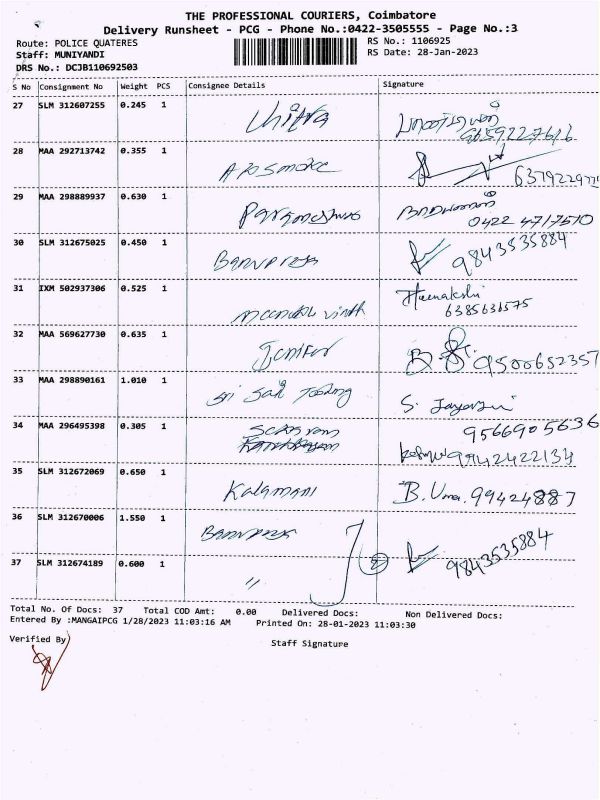 THE PROFESSIONAL COURIERS, Coimbatore
Delivery Runsheet - PCG - Phone No.:0422-3505555 - Page No.:3
Route: POLICE QUATERES RS No.: 1106925
Staff: MUNIYANDI RS Date: 28-Jan-2023
DRS No.: DCJB110692503
S No Consignment No Weight PCS Consignee Details Signature
27 SLM 312607255 0.245 1 Chitra
28 MAA 292713742 0.355 1
29 MAA 298889937 0.630 1 0422 4717510
30 SLM 312675025 0.450 1 Banupriya 9843535884
31 IXM 502937306 0.525 1 Meenakshi
6385636575
32 MAA 569627730 0.635 1 Jenifer 9500652357
33 MAA 298890161 1.010 1 Sri Sai S. Jayasri
34 MAA 296495398 0.305 1 9566905636
9942422134
35 SLM 312672069 0.650 1 Kalamani B. Uma. 99424887
36 SLM 312670006 1.550 1
37 SLM 312674189 0.600 1 " 2 9843535884
Total No. Of Docs: 37 Total COD Amt: 0.00 Delivered Docs: Non Delivered Docs:
Entered By :MANGAIPCG 1/28/2023 11:03:16 AM Printed On: 28-01-2023 11:03:30
Verified By Staff Signature